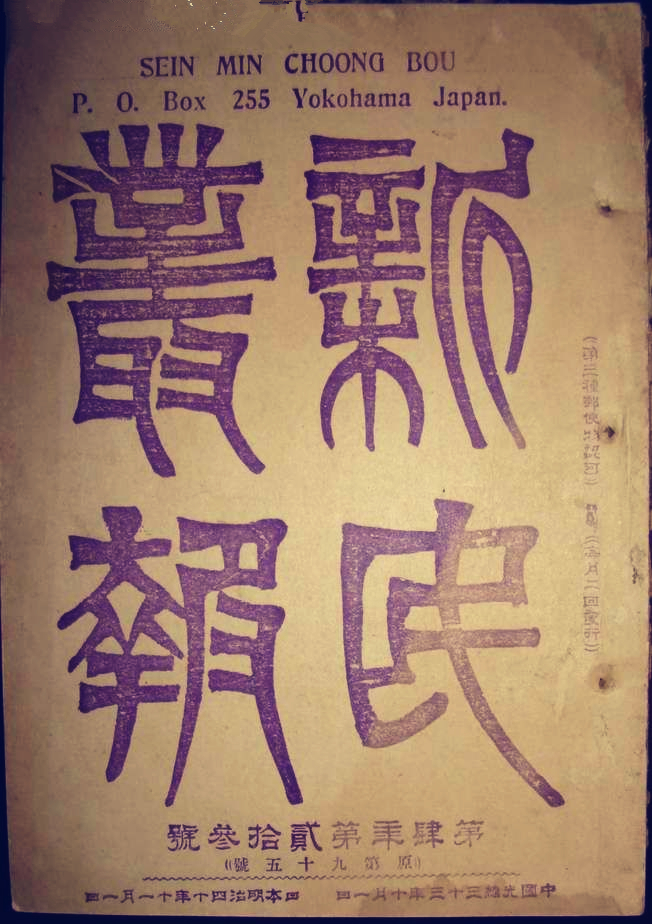 SEIN MIN CHOONG BOU
P. O. Box 255 Yokohama Japan.
新民
叢報
（第三種郵便物認可）（每月二回發行）
第肆年第貳拾參號
（原第九十五號）
中國光緒三十三年十月一日 日本明治四十年十一月一日